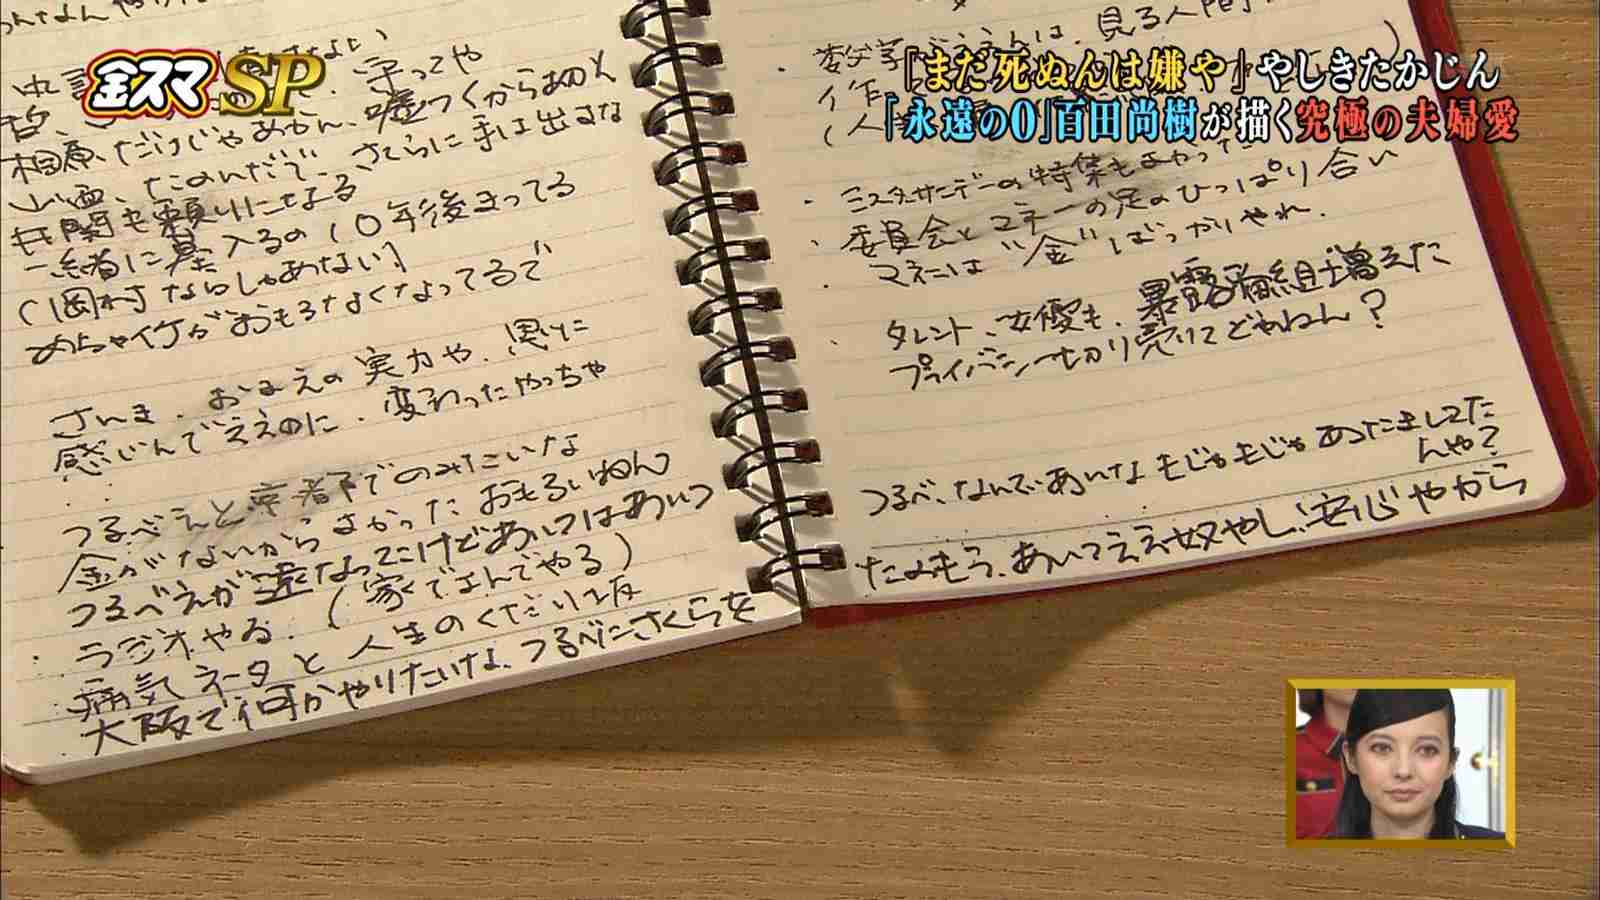 金スマSP
『まだ死ぬんは嫌や』やしきたかじん
「永遠の0」百田尚樹が描く究極の夫婦愛
守ってや
相原、だけじゃあかん、嘘つくからあの人
山西、たのんだで、さくらに手は出すな
井関も頼りになる
一緒に墓入るの10年後まってる
(岡村ならしゃあない)
めちゃイケがおもろなくなってるで
さんま、おまえの実力や、思いに
感じんでええのに、変わったやっちゃ
つるべえと京都でのみたいな
金がないからよかったおもろいねん
つるべえが遠なってこけどあいつはあいつ
ラジオやる、(家でよんでやる)
病気ネタと人生のくだり坂
大阪で何かやりたいな、つるべにさくらを
は、見る人
ミスターサンデーの特集も
委員会とマネーの足のひっぱり合い
マネーは"金"ばっかりやれ、
タレント、女優も、暴露番組増えた
プライバシー切り売りてどやねん?
つるべ、なんであいなもじゃもじゃあたましてた
んや?
たのもう、あいつええ奴やし、安心やから